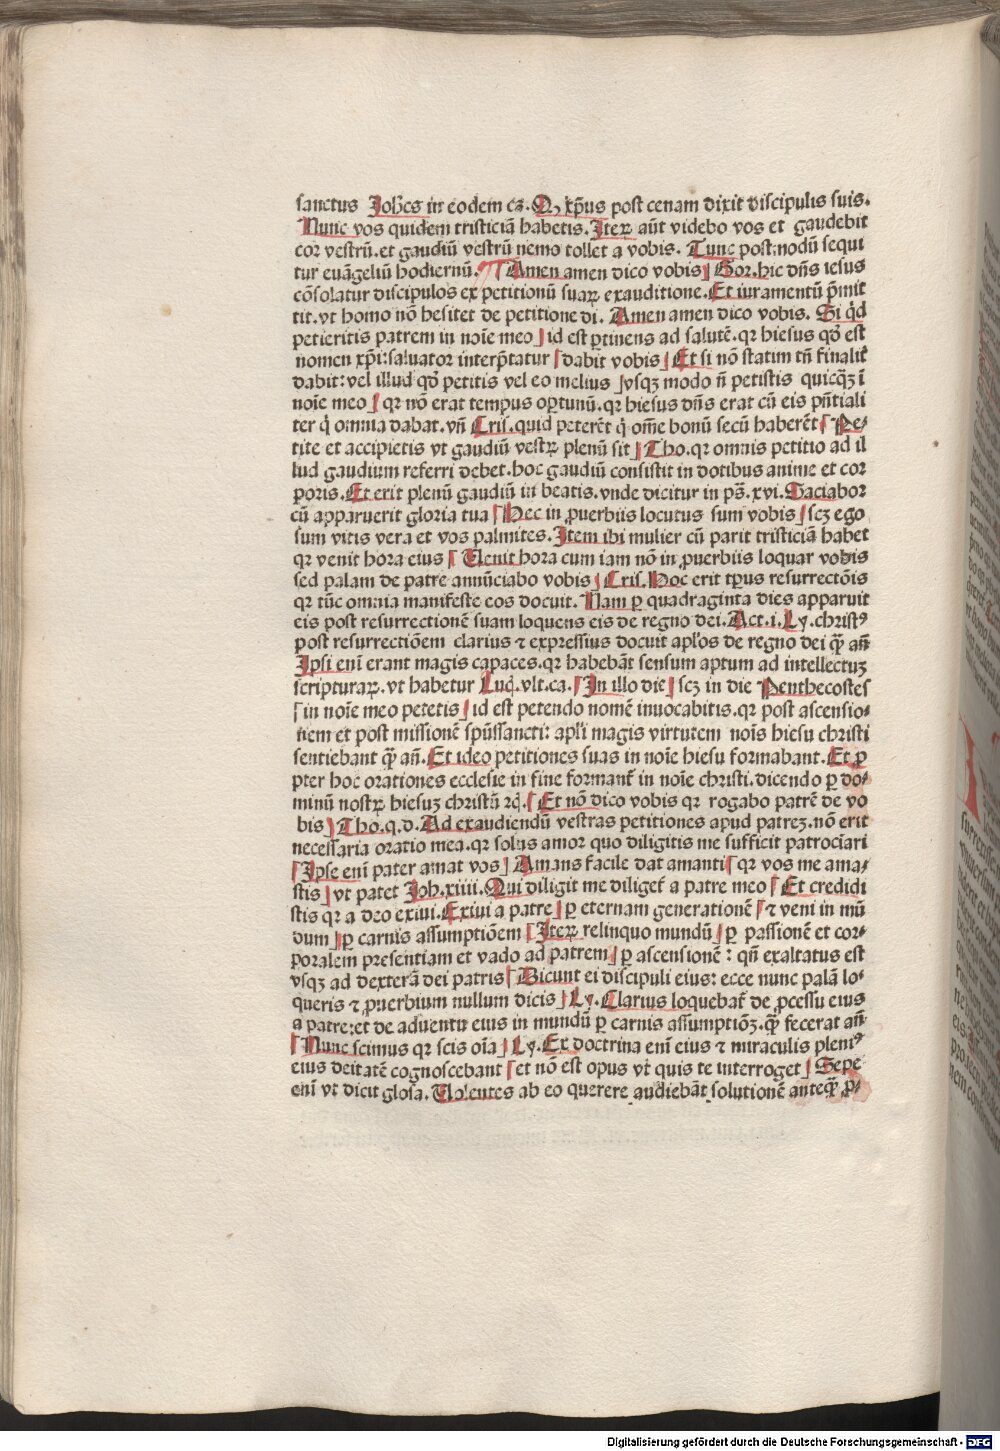 sanctus Joh̄es in eodem ca. Q, xp̄us post cenam dixit discipulis suis.
Nunc vos quidem tristiciā habetis. Iteꝝ aūt videbo vos et gaudebit
cor vestrū. et gaudiū vestrū nemo tollet a vobis. Tunc post modū sequi
tur euāgeliū hodiernū. Amen amen dico vobis Gor. hic dn̄s iesus
cōsolatur discipulos ex petitionū suaꝝ exauditione. Et iuramentū p̄mit
tit. vt homo nō hesitet de petitione di. Amen amen dico vobis. Si q̄d
petieritis patrem in noīe meo id est ꝑtinens ad salutē. qꝛ hiesus qđ est
nomen xp̄i: saluator interp̄tatur dabit vobis Et si nō statim tn̄ finalit̄
dabit: vel illud qđ petitis vel eo melius vsqꝫ modo n̄ petistis quicq̄ꝫ ī
noīe meo qꝛ nō erat tempus oꝑtunū. qꝛ hiesus dn̄s erat cū eis pn̄tiali
ter q̄ omnia dabat. vn̄ Cris. quid peterēt q̄ om̄e bonū secū haberēt Pe-
tite et accipietis vt gaudiū vestꝝ plenū sit Tho. qꝛ omnis petitio ad il
lud gaudium referri debet. hoc gaudiū consistit in dotibus anime et cor
poris. Et erit plenū gaudiū in beatis. vnde dicitur in ps̄. xvi. Saciabor
cū apparuerit gloria tua Hec in ꝓuerbiis locutus sum vobis scꝫ ego
sum vitis vera et vos palmites. Item ibi mulier cū parit tristiciā habet
qꝛ venit hora eius Uenit hora cum iam nō in ꝓuerbiis loquar vobis
sed palam de patre annūciabo vobis Cris. Hoc erit tꝑus resurrectōis
qꝛ tūc omnia manifeste eos docuit. Nam ꝑ quadraginta dies apparuit
eis post resurrectionē suam loquens eis de regno dei. Act. i. Ly. christꝰ
post resurrectiōem clarius ⁊ expressius docuit apl̄os de regno dei q̄ꝫ an̄
Ipsi enī erant magis capaces. qꝛ habebāt sensum aptum ad intellectuꝫ
scripturaꝝ. vt habetur Luc̄. vlt. ca. In illo die scꝫ in die Penthecostes
in noīe meo petetis id est petendo nomē inuocabitis. qꝛ post ascensio-
nem et post missionē spūssancti: apl̄i magis virtutem noīs hiesu christi
sentiebant q̄ꝫ an̄. Et ideo petitiones suas in noīe hiesu formabant. Et ꝓ
pter hoc orationes ecclesie in fine formant̄ in noīe christi. dicendo ꝑ do-
minū nostꝝ hiesuꝫ christū ⁊c̄. Et nō dico vobis qꝛ rogabo patrē de vo
bis Tho. q. d. Ad exaudiendū vestras petitiones apud patreꝫ. nō erit
necessaria oratio mea. qꝛ solus amor quo diligitis me sufficit patrociari
Ipse enī pater amat vos Amans facile dat amanti qꝛ vos me ama-
stis vt patet Joh. xiiii. Qui diligit me diliget̄ a patre meo Et credidi
stis qꝛ a deo exiui. Exiui a patre ꝑ eternam generationē ⁊ veni in mū
dum ꝑ carnis assumptiōem Iteꝝ relinquo mundū ꝑ passionē et cor-
poralem presentiam et vado ad patrem ꝑ ascensionē: qn̄ exaltatus est
vsqꝫ ad dexterā dei patris Dicunt ei discipuli eius: ecce nunc palā lo-
queris ⁊ ꝓuerbium nullum dicis Ly. Clarius loquebat̄ de ꝓcessu eius
a patre: et de aduentu eius in mundū ꝑ carnis assumptiōꝫ. q̄ꝫ fecerat an̄
Nunc scimus qꝛ scis oīa Ly. Ex doctrina enī eius ⁊ miraculis pleniꝰ
eius deitatē cognoscebant et nō est opus vt quis te interroget Sepe
enī vt dicit glosa. Uolentes ab eo querere audiebāt solutionē anteq̄ꝫ ꝓ-
Digitalisierung gefördert durch die Deutsche Forschungsgemeinschaft - DFG